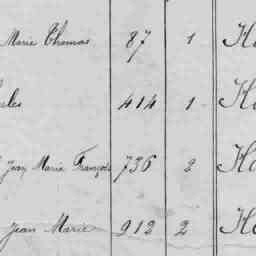 Marie Thomas 87 1
414 1
Jean Marie François 736 2
Jean Marie 912 2